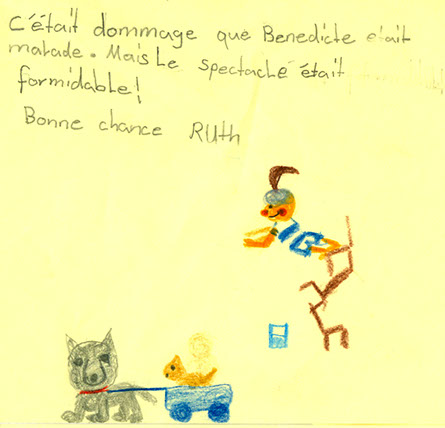 C'était dommage que Benedicte etait
malade. Mais Le spectacle était
formidable!
Bonne chance RUth